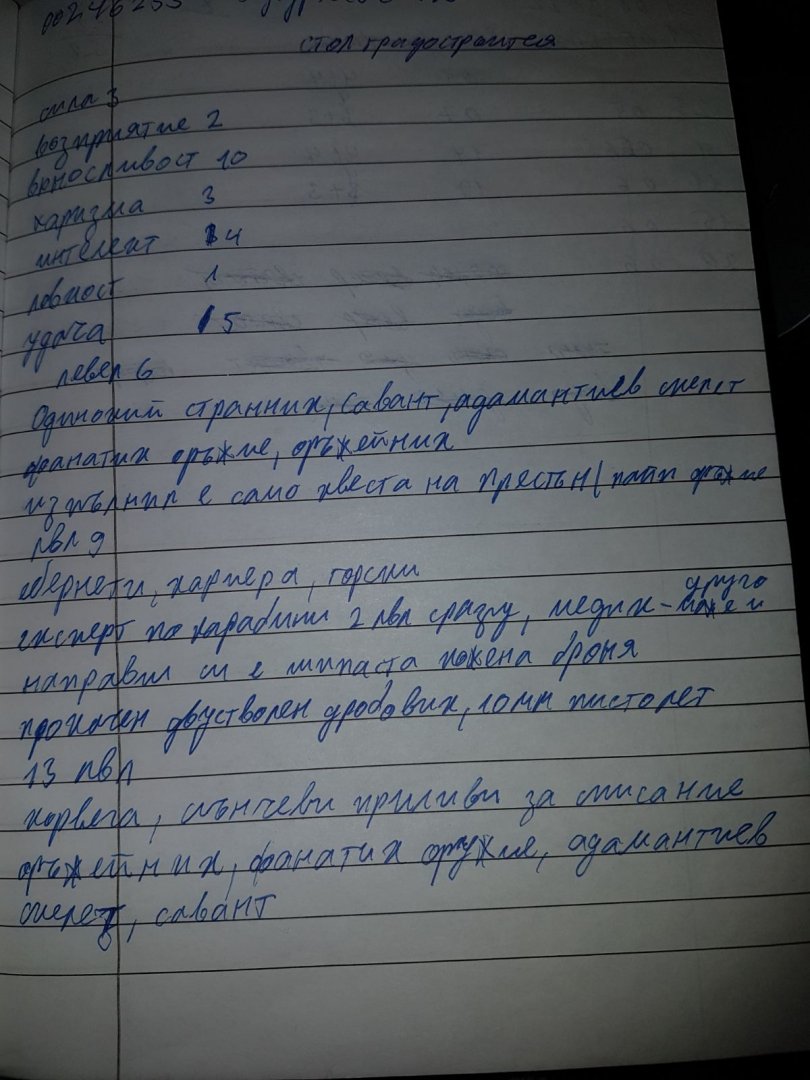 00246255
стол градостроителя
сила 3
возприятие 2
выносливост 10
харизма 3
интелект 4
ловкост 1
удача 5
левел 6
Одинокий странник, савант, адамантиев скелет
фанатик оръжие, оръжейник
изпълнил е само квеста на престън (пайп оръжие
лвл 9
абернети, карьера, горски
експерт по карабини 2 лвл сразу, медик - друго
направил си е шипаста кожена броня
прокачен двустволен дробовик, 10мм пистолет
13 лвл
корвега, слънчеви приливи за списание
оръжейник, фанатик оружие, адамантиев
скелет, савант